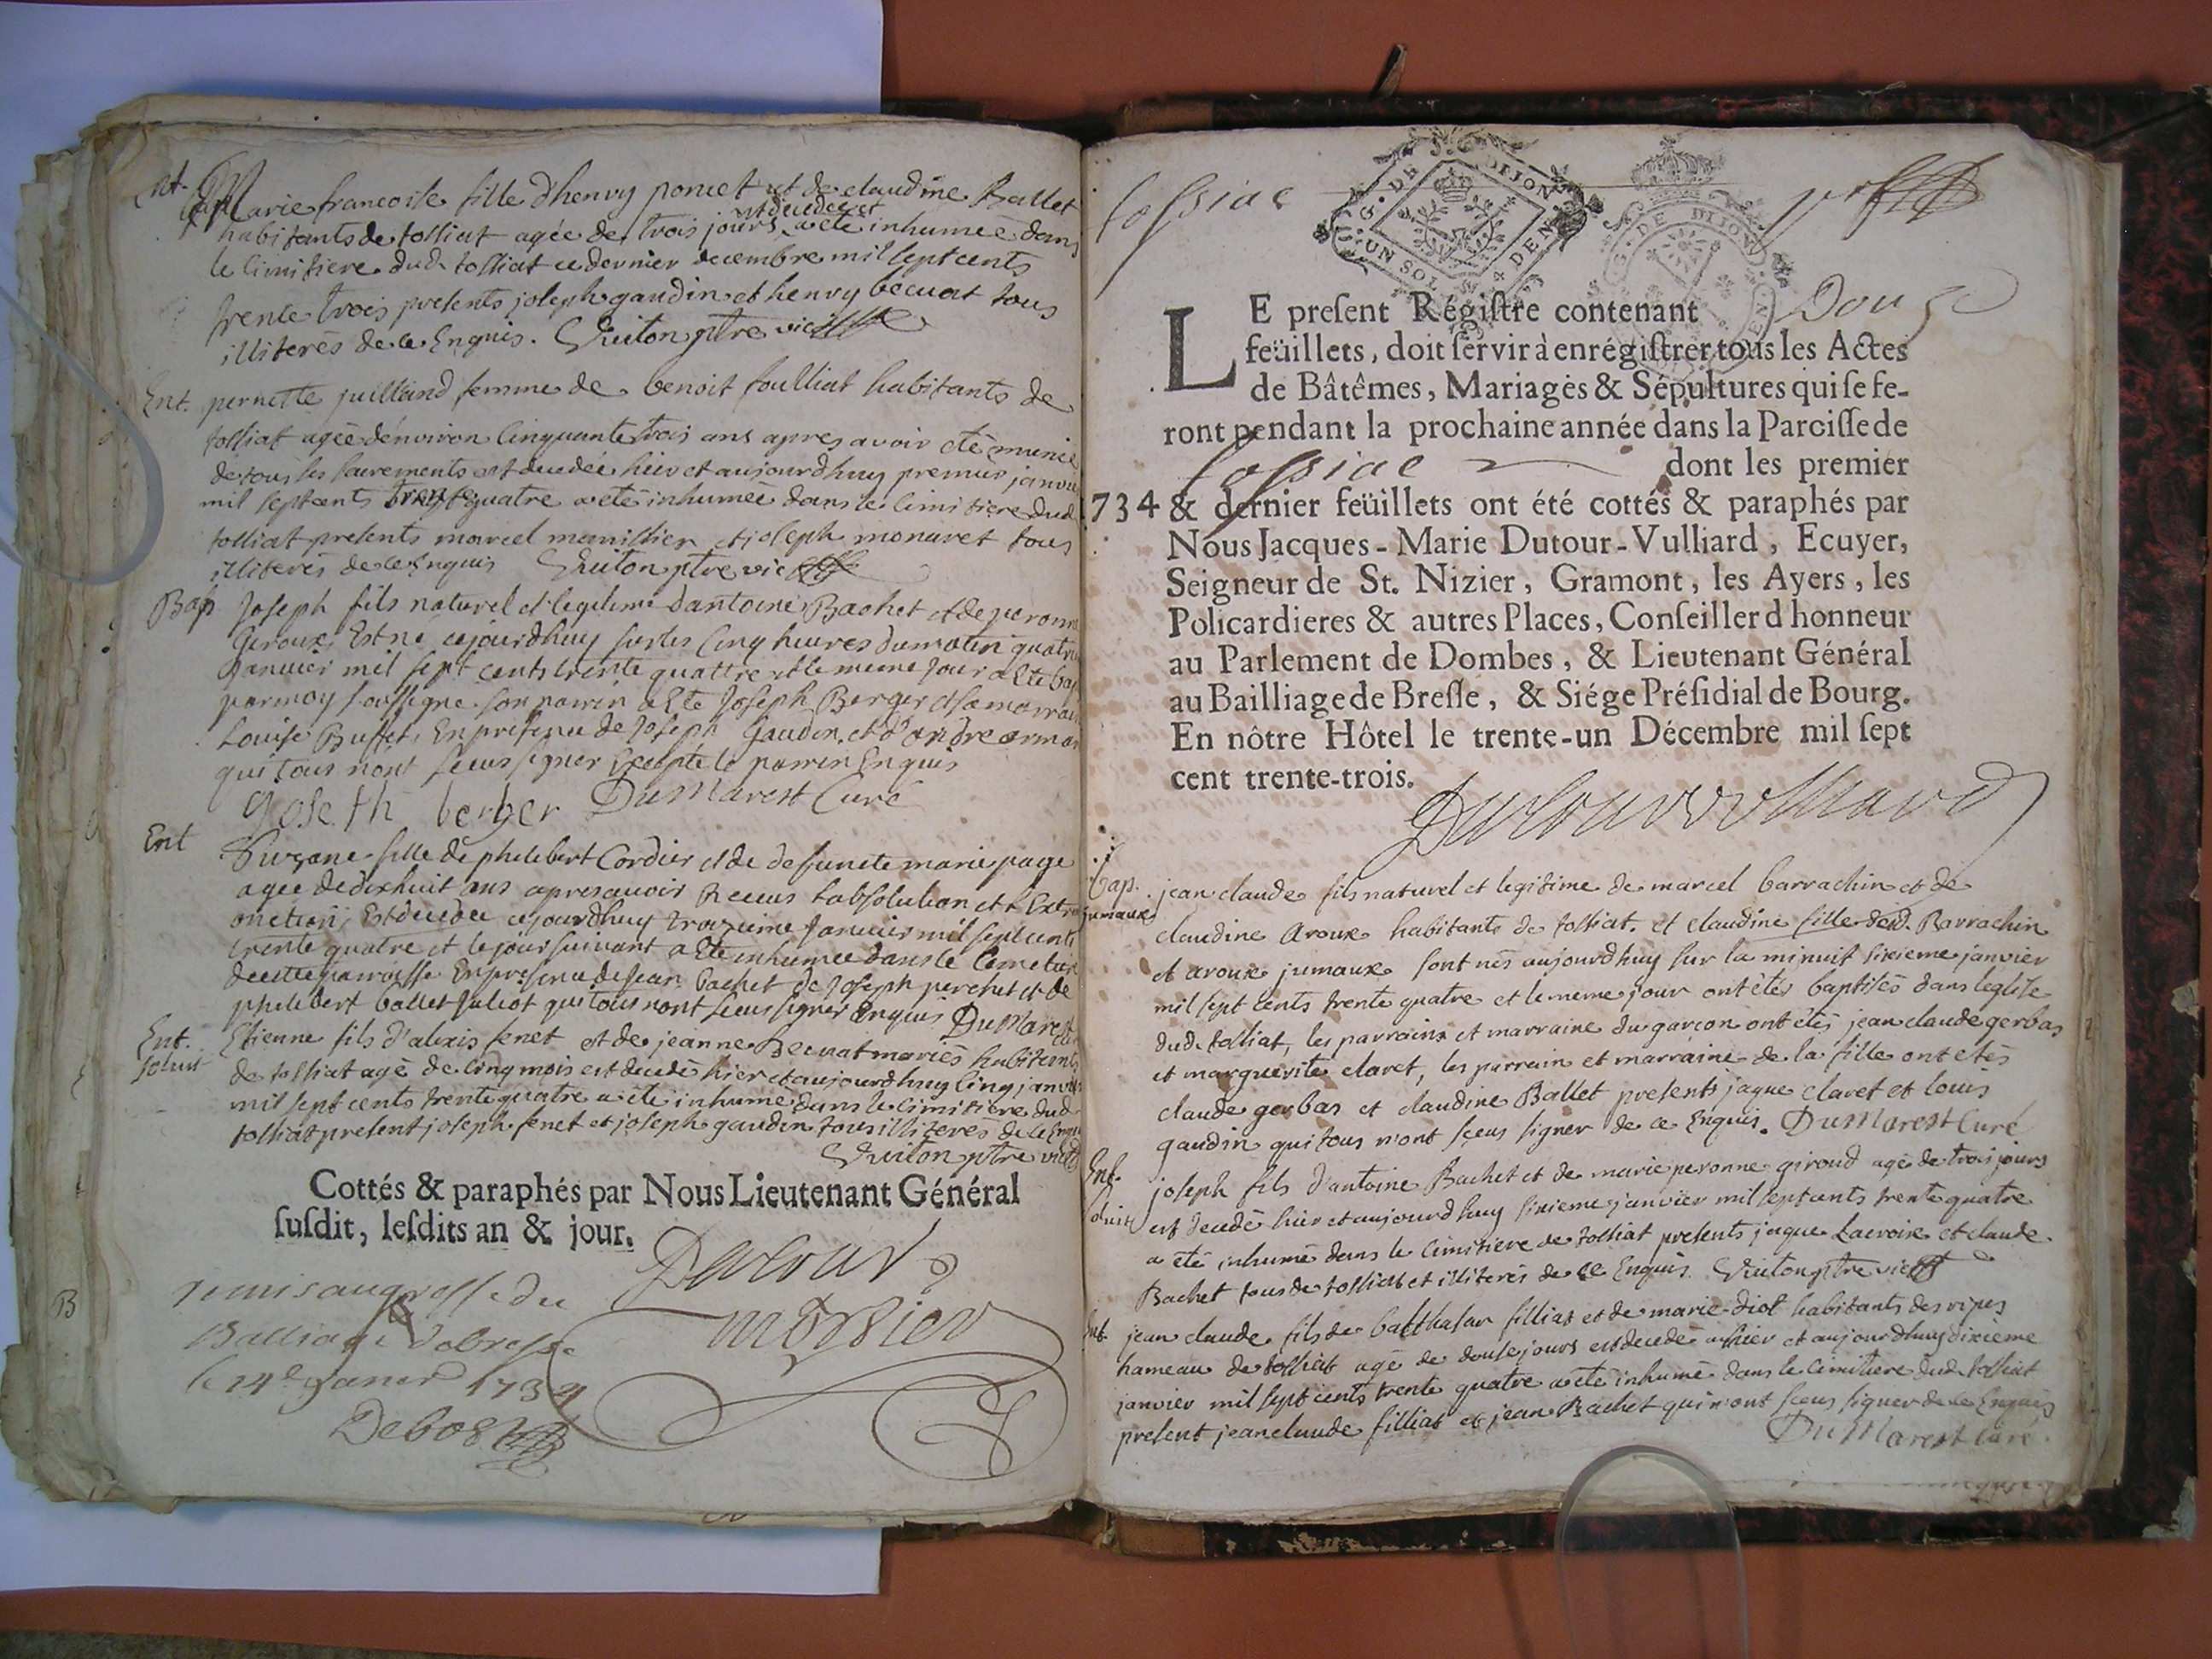 Ent. Marie francoise fille d'henry poncet et de claudine Ballet
habitants de tossiat agée de trois jours est decedee et a été inhumée dans
le cimitiere dud. tossiat ce dernier decembre mil sept cents
trente trois presents joseph gaudin et henry becuat tous
illiterés de ce Enquis. ptre vic
Ent. pernette juilliand femme de benoit foulliat habitants de
tossiat agée d'environ cinquante trois ans apres avoir eté munie
de tous les sacrements est decedée hier et aujourdhuy premier janvier
mil septcents trente quatre a eté inhumée dans le cimitiere dud
tossiat presents marcel et joseph monuret tous
illiterés de ce Enquis ptre vic
Bap Joseph fils naturel et legitime dantoine Bachet et de peronne
Giroux Est né cejourdhuy sur les Cinq heures du matin quatre
Janvier mil sept cents trente quattre et le meme Jour a Ete bap
par moy soussigne son parrin a Ete Joseph Berger et sa marraine
Louise Buffet, En presence de Joseph Gaudin, et d'andre
qui tous nont sceus signer Excepté le parrin Enquis
Joseth berger DuMarest Curé
Ent Suzane fille de philebert Cordier et de defuncte marie page
agee de dixhuit ans apres avoir Receus l'absolution et l'Extre
onction, Est decedee cejourdhuy trozieme Janvier mil sept cents
trente quatre et le jour suivant a Ete inhumee dans le Cemetiere
de cette parroisse En presence de Jean bachet de Joseph perchet et de
philebert ballet Juliot qui tous nont sceus signer Enquis DuMarest
Ent. Etienne fils d'alexis fenet et de jeanne Becuat mariés habitants
de tossiat agé de cinq mois est decedé hier et aujourdhuy cinq janvier
mil sept cents trente quatre a eté inhumé dans le cimitiere dud
tossiat present joseph fenet et joseph gaudin tous illiteres de ce Enquis
ptre vic
Cottés & paraphés par Nous Lieutenant Général
susdit, lesdits an & jour.
Dutour
remis au greffe du
Balliage de bresse
le 14e Janer 1734
1734
G. DE DIJON
UN SOL 4 DEN
G. DE DIJON
DEN
Douze
LE present Régistre contenant
feüillets, doit servir à enrégistrer tous les Actes
de Bâtêmes, Mariages & Sépultures qui se fe-
ront pendant la prochaine année dans la Paroisse de
dont les premier
& dernier feüillets ont été cottés & paraphés par
Nous Jacques-Marie Dutour-Vulliard, Ecuyer,
Seigneur de St. Nizier, Gramont, les Ayers, les
Policardieres & autres Places, Conseiller d honneur
au Parlement de Dombes, & Lieutenant Général
au Bailliage de Bresse, & Siége Présidial de Bourg.
En nôtre Hôtel le trente-un Décembre mil sept
cent trente-trois.
Dutour vulliard
bap. jean claude fils naturel et legitime de marcel barrachin et de
jumaux claudine aroux habitants de tossiat. et claudine fille desd. Barrachin
et aroux jumaux sont nés aujourdhuy sur la minuit sixieme janvier
mil sept cents trente quatre et le meme jour ont étés baptisés dans l'eglise
dud. tossiat, les parrains et marraine du garcon ont etés jean claude gerbas
et marguerite claret, les parrain et marraine de la fille ont etés
claude gerbas et claudine Ballet presents jaque claret et louis
gaudin qui tous n'ont sceus signer de ce Enquis. DuMarest Curé
Ent. joseph fils d'antoine Bachet et de marie peronne giroud agé de trois jours
est decedé hier et aujourdhuy sixieme janvier mil septcents trente quatre
a eté inhumé dans le cimitiere de tossiat presents jaque Lacroix et claude
Bachet tous de tossiat et illiterés de ce Enquis. ptre vic
Ent. jean claude fils de balthasar filliat et de marie diot habitants des ripes
hameau de tossiat agé de douse jours est decedé hier et aujourdhuy dixieme
janvier mil sept cents trente quatre a eté inhumé dans le cimitiere dud. tossiat
present jean claude filliat et jean Bachet qui n'ont sceus signer de ce Enquis
DuMarest Curé